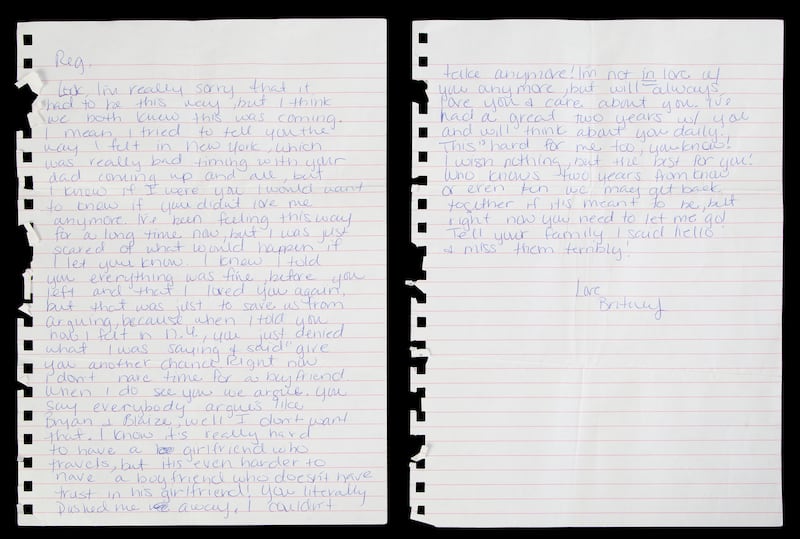 Reg.
Look, I'm really sorry that it
had to be this way, but I think
we both knew this was coming.
I mean I tried to tell you the
way I felt in New York, which
was really bad timing with your
dad coming up and all, but
I knew if I were you I would want
to know if you didn't love me
anymore. I've been feeling this way
for a long time now, but I was just
scared of what would happen if
I let you know. I know I told
you everything was fine, before you
left and that I loved you again,
but that was just to save us from
arguing, because when I told you
how I felt in N.Y., you just denied
what I was saying & said "give
you another chance. Right now
I don't have time for a boyfriend
when I do see you we argue. You
say everybody argues like
Bryan & Blaize, well I don't want
that. I know it's really hard
to have a girlfriend who
travels, but it's even harder to
have a boyfriend who doesn't have
trust in his girlfriend! You literally
pushed me away, I couldn't
take anymore! I'm not in love w/
you anymore, but will always
love you & care about you. I've
had a great two years w/ you
and will think about you daily!
This hard for me too, you know!
I wish nothing, but the best for you!
Who knows two years from know
or even ten we may get back
together if it's meant to be, but
right now you need to let me go!
Tell your family I said hello
& miss them terribly!
Love
Britney